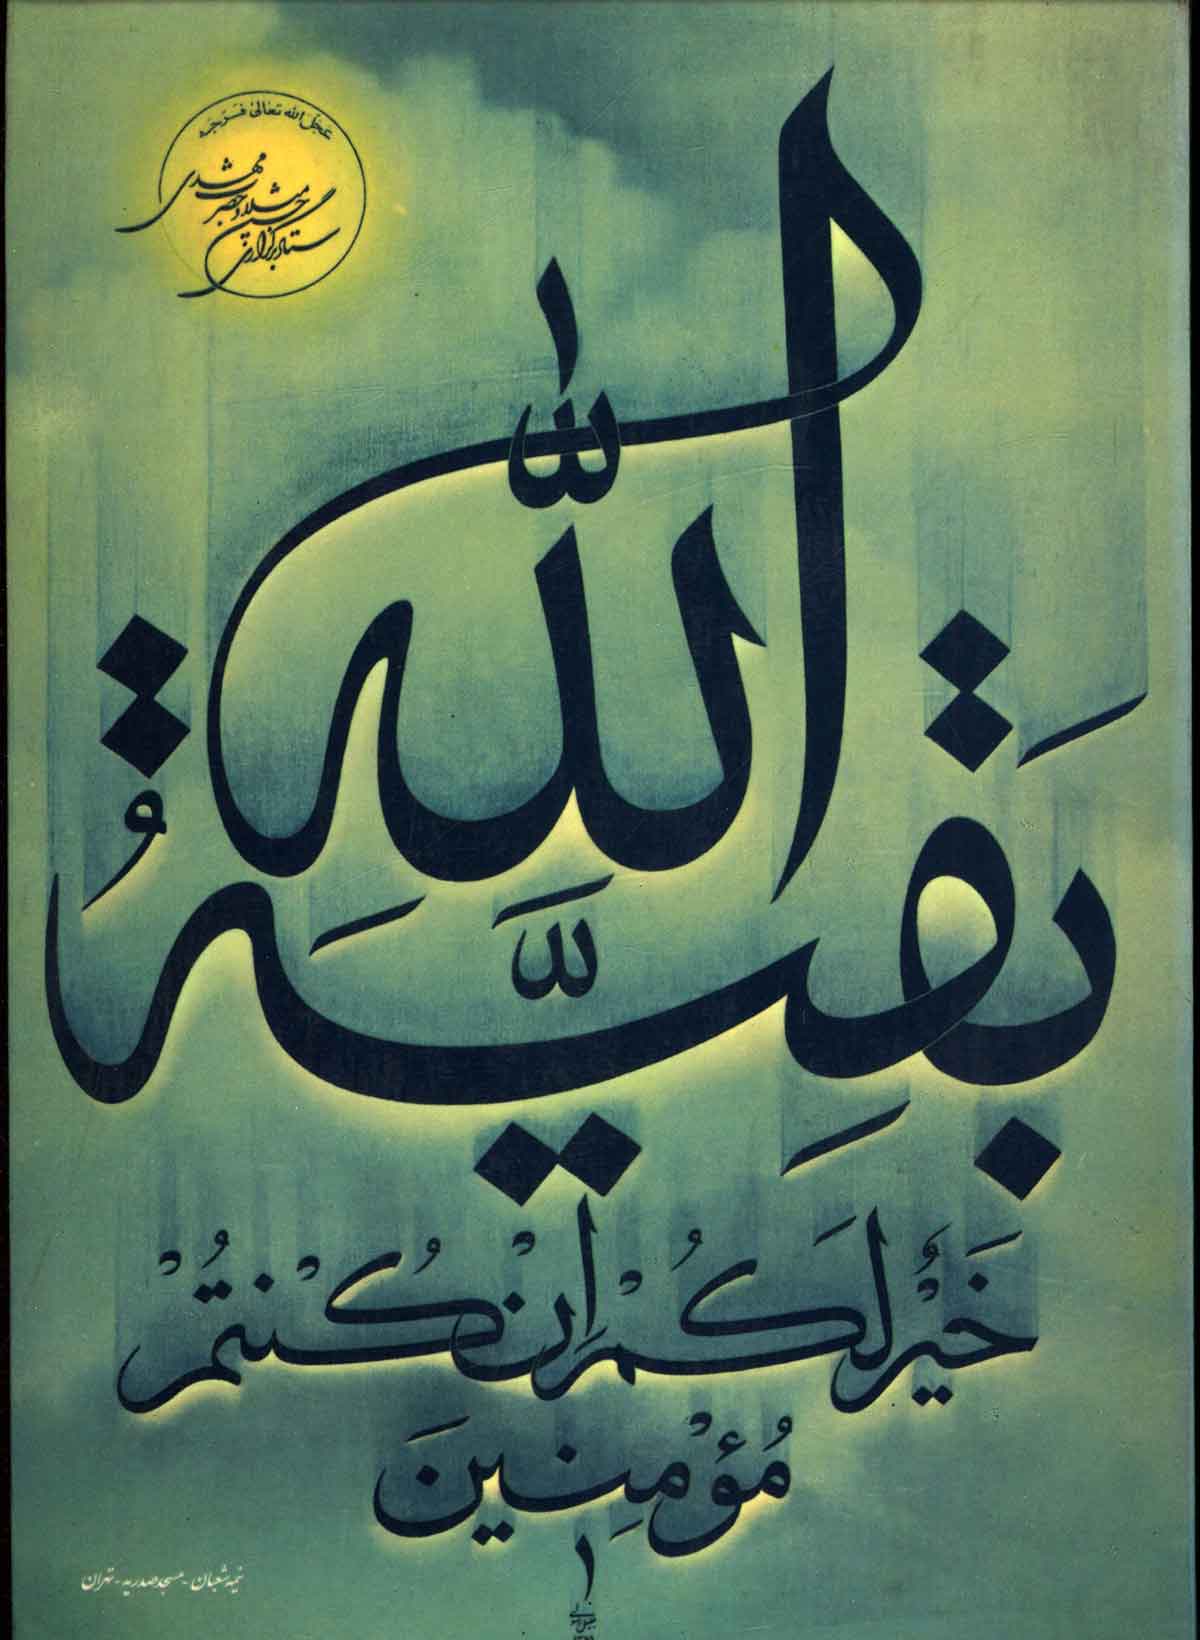 عجل الله تعالی فرجه
ستاد برگزاری
جشن
میلاد حضرت
مهدی
بَقِيَّةُ اللّٰهِ
خَيْرٌ لَكُمْ اِنْ كُنْتُمْ
مُؤْمِنِينَ
نیمه شعبان - مسجد صدریه - تهران